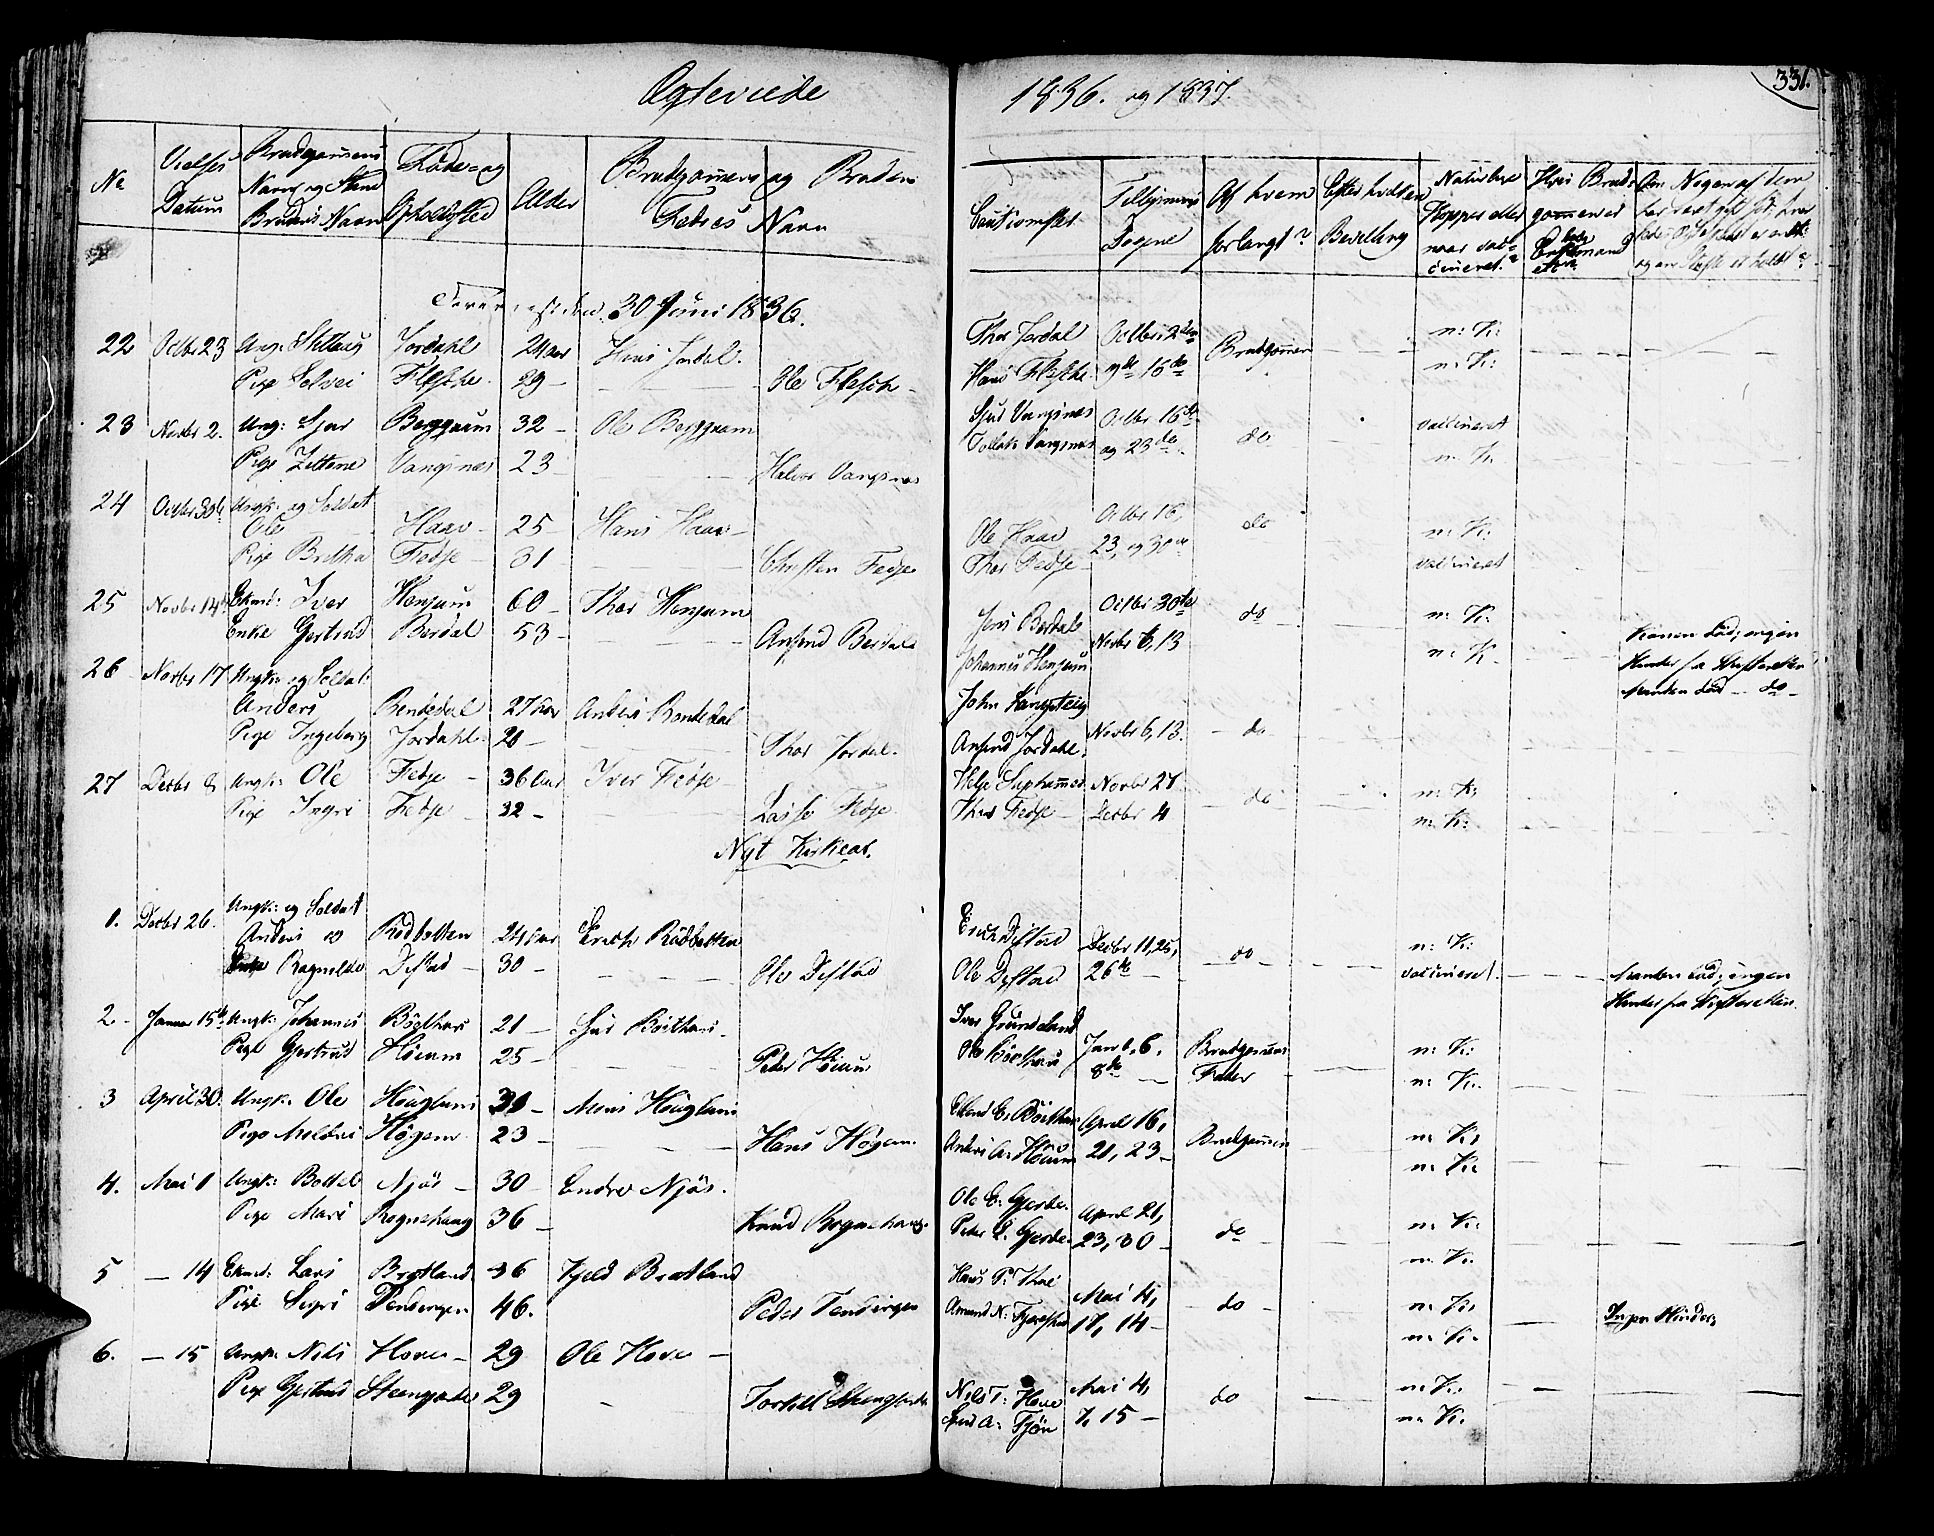 Ægteviede 1836. og 1837.
331.
No
Vielses Datum
Brudgommens Navn og Stand Brudens Navn
Føde- og Opholdsted
Alder
Brudgommens og Brudens Fædres Navn
Cautionister
Tillysnings Dagene
Af hvem forlangt?
Efter hvilken Bevilling
Naturlige Kopper eller naar vaccineret?
Hvis Brudgommen er
Om Nogen af dem har været gift før, hvor
og om Skifte er holdt?
30 Juni 1836.
22 Octbr 23 Ung: Jordahl 24 aar Jordal. Thor Jordal Octbr: 2den Brudgommen n: K:
Pige Solvei Fleske 29 — Ole Flesche Hans Fleske og 16de n: K:
23 Novbr 2. Ung: Sjur Berqqum 32 — Ole Berqqum Sjur Vangsnes Octbr 16de do vaccineret
Pige Vangsnes 23 — Halvor Vangsnes Vangsnes og 23de n: K.
24 Octbr 30te Ungk: og Soldat
Ole Haav — 25 — Hans Haav — Ole Haav Octbr 16, do n: K:
Pige Brittha Fedje — 31 Christen Fedje Thor Fedje — 23, og 30te vaccineret
25 Novbr 14de Ekmd: Iver Henjum 60 — Thor Henjum Jens Berdal Octbr 30te do n: K. Konen død; ingen
Enke Gjertrud Berdal 53 — Anfind Berdal Johannes Henjum Novbr 6, 13 n: K. Hinder fra Skifteretten
Manden død — do —
26 Novbr 17 Ungk: og Soldat
Anders Bendedal 27 aar Anders Bendedal John
Pige Ingeborg Jordahl 20 — Thor Jordal. Anfind Jordahl. Novbr 6, 13. — do
27 Decbr 8 Ungk: Ole Fedje — 36 aar Iver Fedje Helje Novbr 27 — do n: K:
Pige Ingri Fedje — 32 — Lasse Fedje Thor Fedje — Decbr 4 n: K:
Nyt Kirkeaar.
1. Decbr 26. Ungk: og Soldat
Anders Rødbotten 24 aar Erich Rødbotten Erich Distad Decbr 11, 25, — do — n: K:
Enke Ragnilde Distad — 30 — Ole Distad Ole Distad 26de — vaccineret. Manden død; ingen
Hinder fra Skifteretten
2 — Januar 15de Ungk: Johannes Böthun 21 — Böthun Iver Grindeland Jan 1, 6, Brudgommens n: K:
Pige Gjertrud Höium 25 — Peder Höium Ole Böthun 8de — Fader n: K.
3 April 30. Ungk: Ole Houglum 30 — Mons Houglum Erlend E: Böthun April 16, Brudgommen n: K:
Pige Høgem 23 — Hans Høgem. Anders A: Höium 21, 23 — n: K:
4. Mai 1 Ungk: Bottel Njøs — 30 — Endre Njøs. Ole E: Gjerde. April 21, do n: K:
Pige Mari Rognehaug 36 — Knud Rognehaug Peder L. Gjerde. 23, 30 — n: K:
5 — 14 Ekmd: Lars Brætland 36 Kjeld Brætland Hans P: Mai 4, — do — n: K: Ingen Hinder
Pige Sigri 46. Peder Amund N: 17, 14 — n: K.
6. — 15 Ungk: Niels Hove — 29 Ole Hove — Niels T: Hove Mai 4, do n: K:
Pige Gjertrud Steengjerde 29 Torkel Steengjerde A: Fjön 7, 15 — n: K.